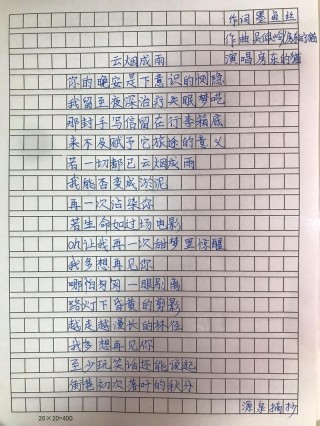 作词 墨鱼丝
作曲 吴佩岭/房东的猫
云烟成雨
演唱 房东的猫
你的晚安是下意识的恻隐
我留至夜深治疗失眠梦呓
那封手写信留在行李箱底
来不及赋予它旅途的意义
若一切都已云烟成雨
我能否变成淤泥
再一次沾染你
若生命如过场电影
Oh让我再一次甜梦里惊醒
我多想再见你
哪怕匆匆一眼别离
路灯下昏黄的剪影
越走越漫长的林径
我多想再见你
至少玩笑话还能说起
街巷初次落叶的秋分
源泉摘抄
20×20=400